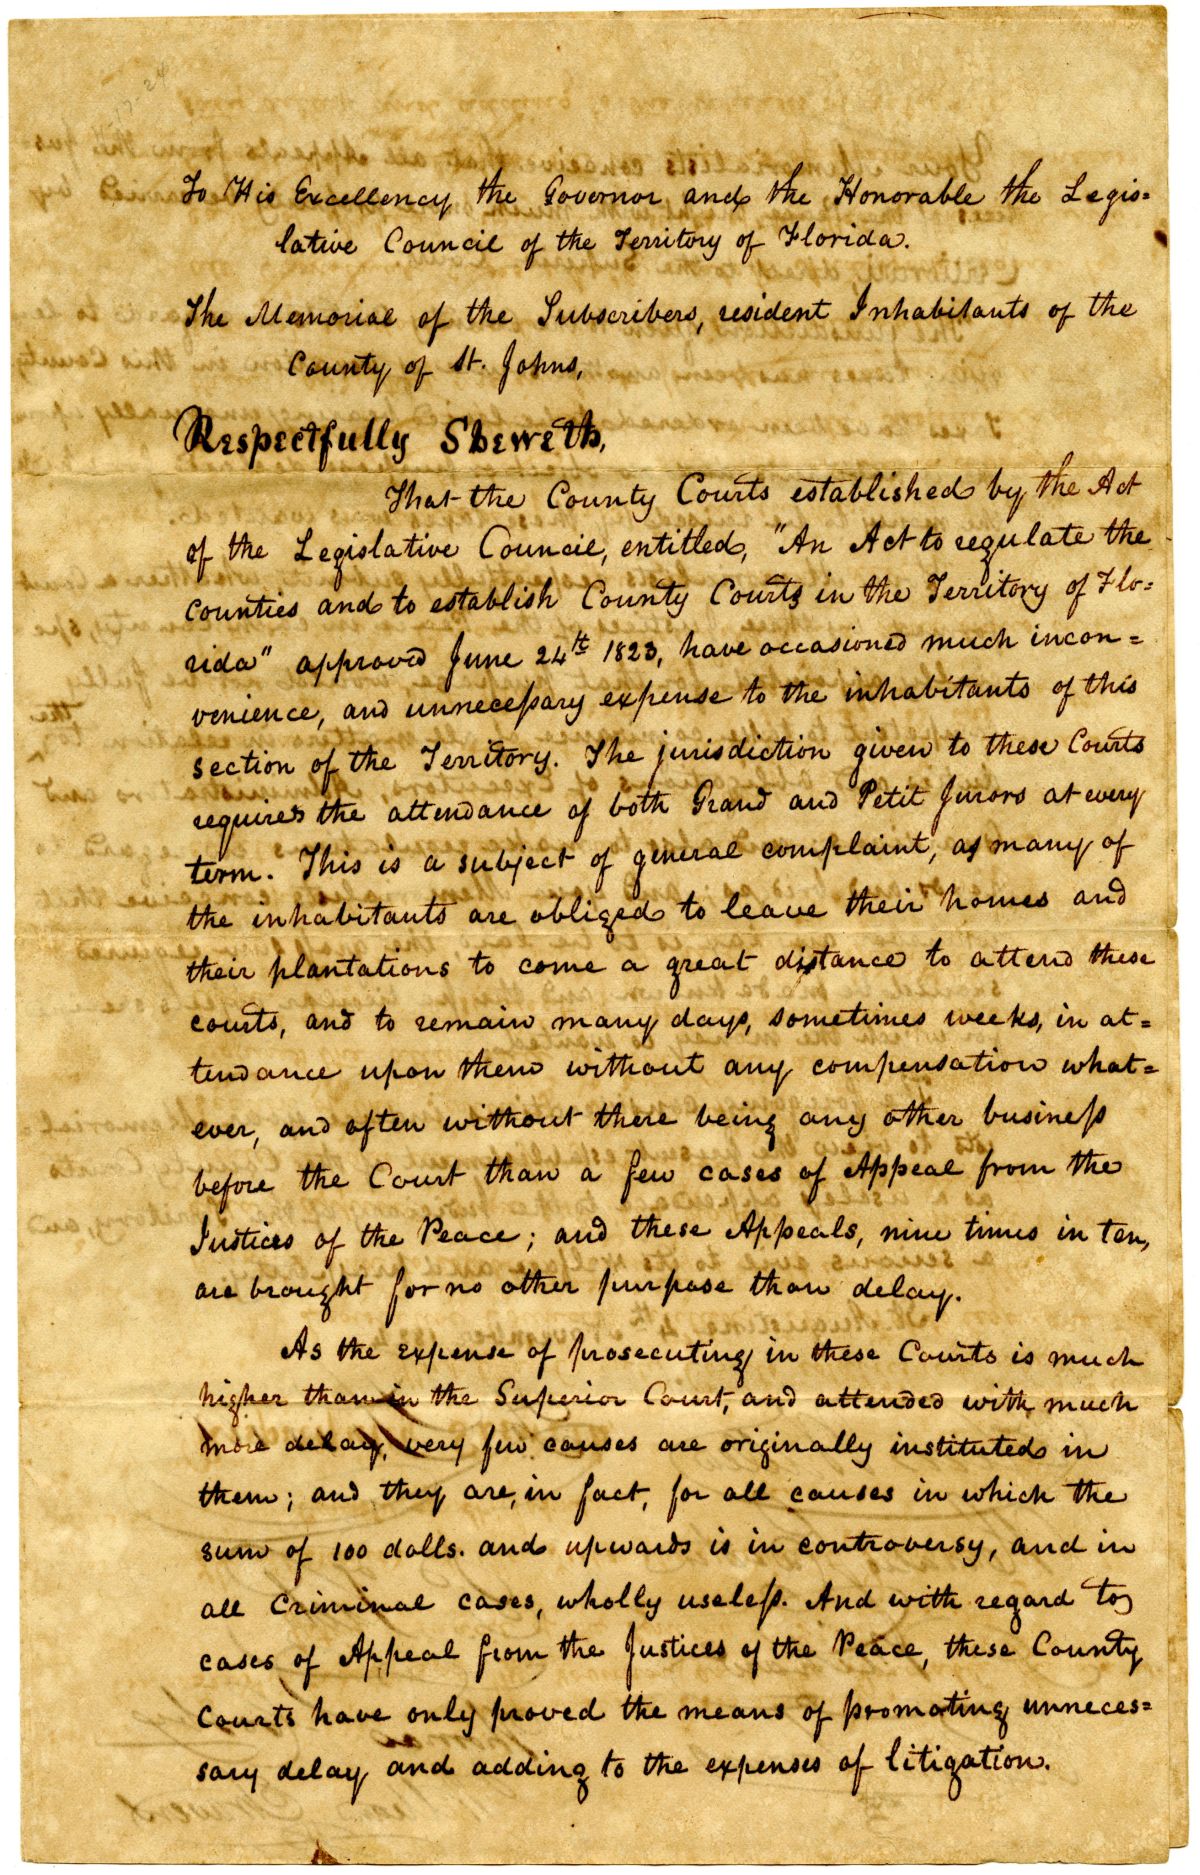 To His Excellency the Governor and the Honorable the Legis=
lative Council of the Territory of Florida.
The Memorial of the Subscribers, resident Inhabitants of the
County of St. Johns,
Respectfully Sheweth,
That the County Courts established by the Act
of the Legislative Council, entitled, "An Act to regulate the
counties and to establish County Courts in the Territory of Flo=
rida" approved June 24th 1823, have occasioned much incon=
venience, and unnecessary expense to the inhabitants of this
section of the Territory. The jurisdiction given to these Courts
requires the attendance of both Grand and Petit Jurors at every
term. This is a subject of general complaint, as many of
the inhabitants are obliged to leave their homes and
their plantations to come a great distance to attend these
courts, and to remain many days, sometimes weeks, in at=
tendance upon them without any compensation what=
ever, and often without there being any other business
before the Court than a few cases of Appeal from the
Justices of the Peace; and these Appeals, nine times in ten,
are brought for no other purpose than delay.
As the expense of prosecuting in these Courts is much
higher than in the Superior Court, and attended with much
more delay, very few causes are originally instituted in
them; and they are, in fact, for all causes in which the
sum of 100 dolls. and upwards is in controversy, and in
all Criminal cases, wholly useless. And with regard to
cases of Appeal from the Justices of the Peace, these County
Courts have only proved the means of promoting unneces=
sary delay and adding to the expenses of litigation.